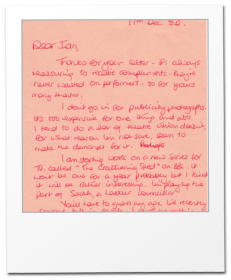 11th Dec 80.
Dear Ian,
Thanks for your letter - it's always
reassuring to receive compliments. they're
never wasted on performers. so for yours
many thanks.
I don't go in for publicity photographs.
It's too expensive for one thing and also
I tend to do a bar of theatre
for what reason I'm not sure, seem to
make the demand for it.
I am starting work on a new series for
TV. called "The Gathering Seed" on BBC. it
won't be one for a year probably but I think
it will be rather interesting. I'm playing the
part of Sarah, a Labour councillor
You'll have to